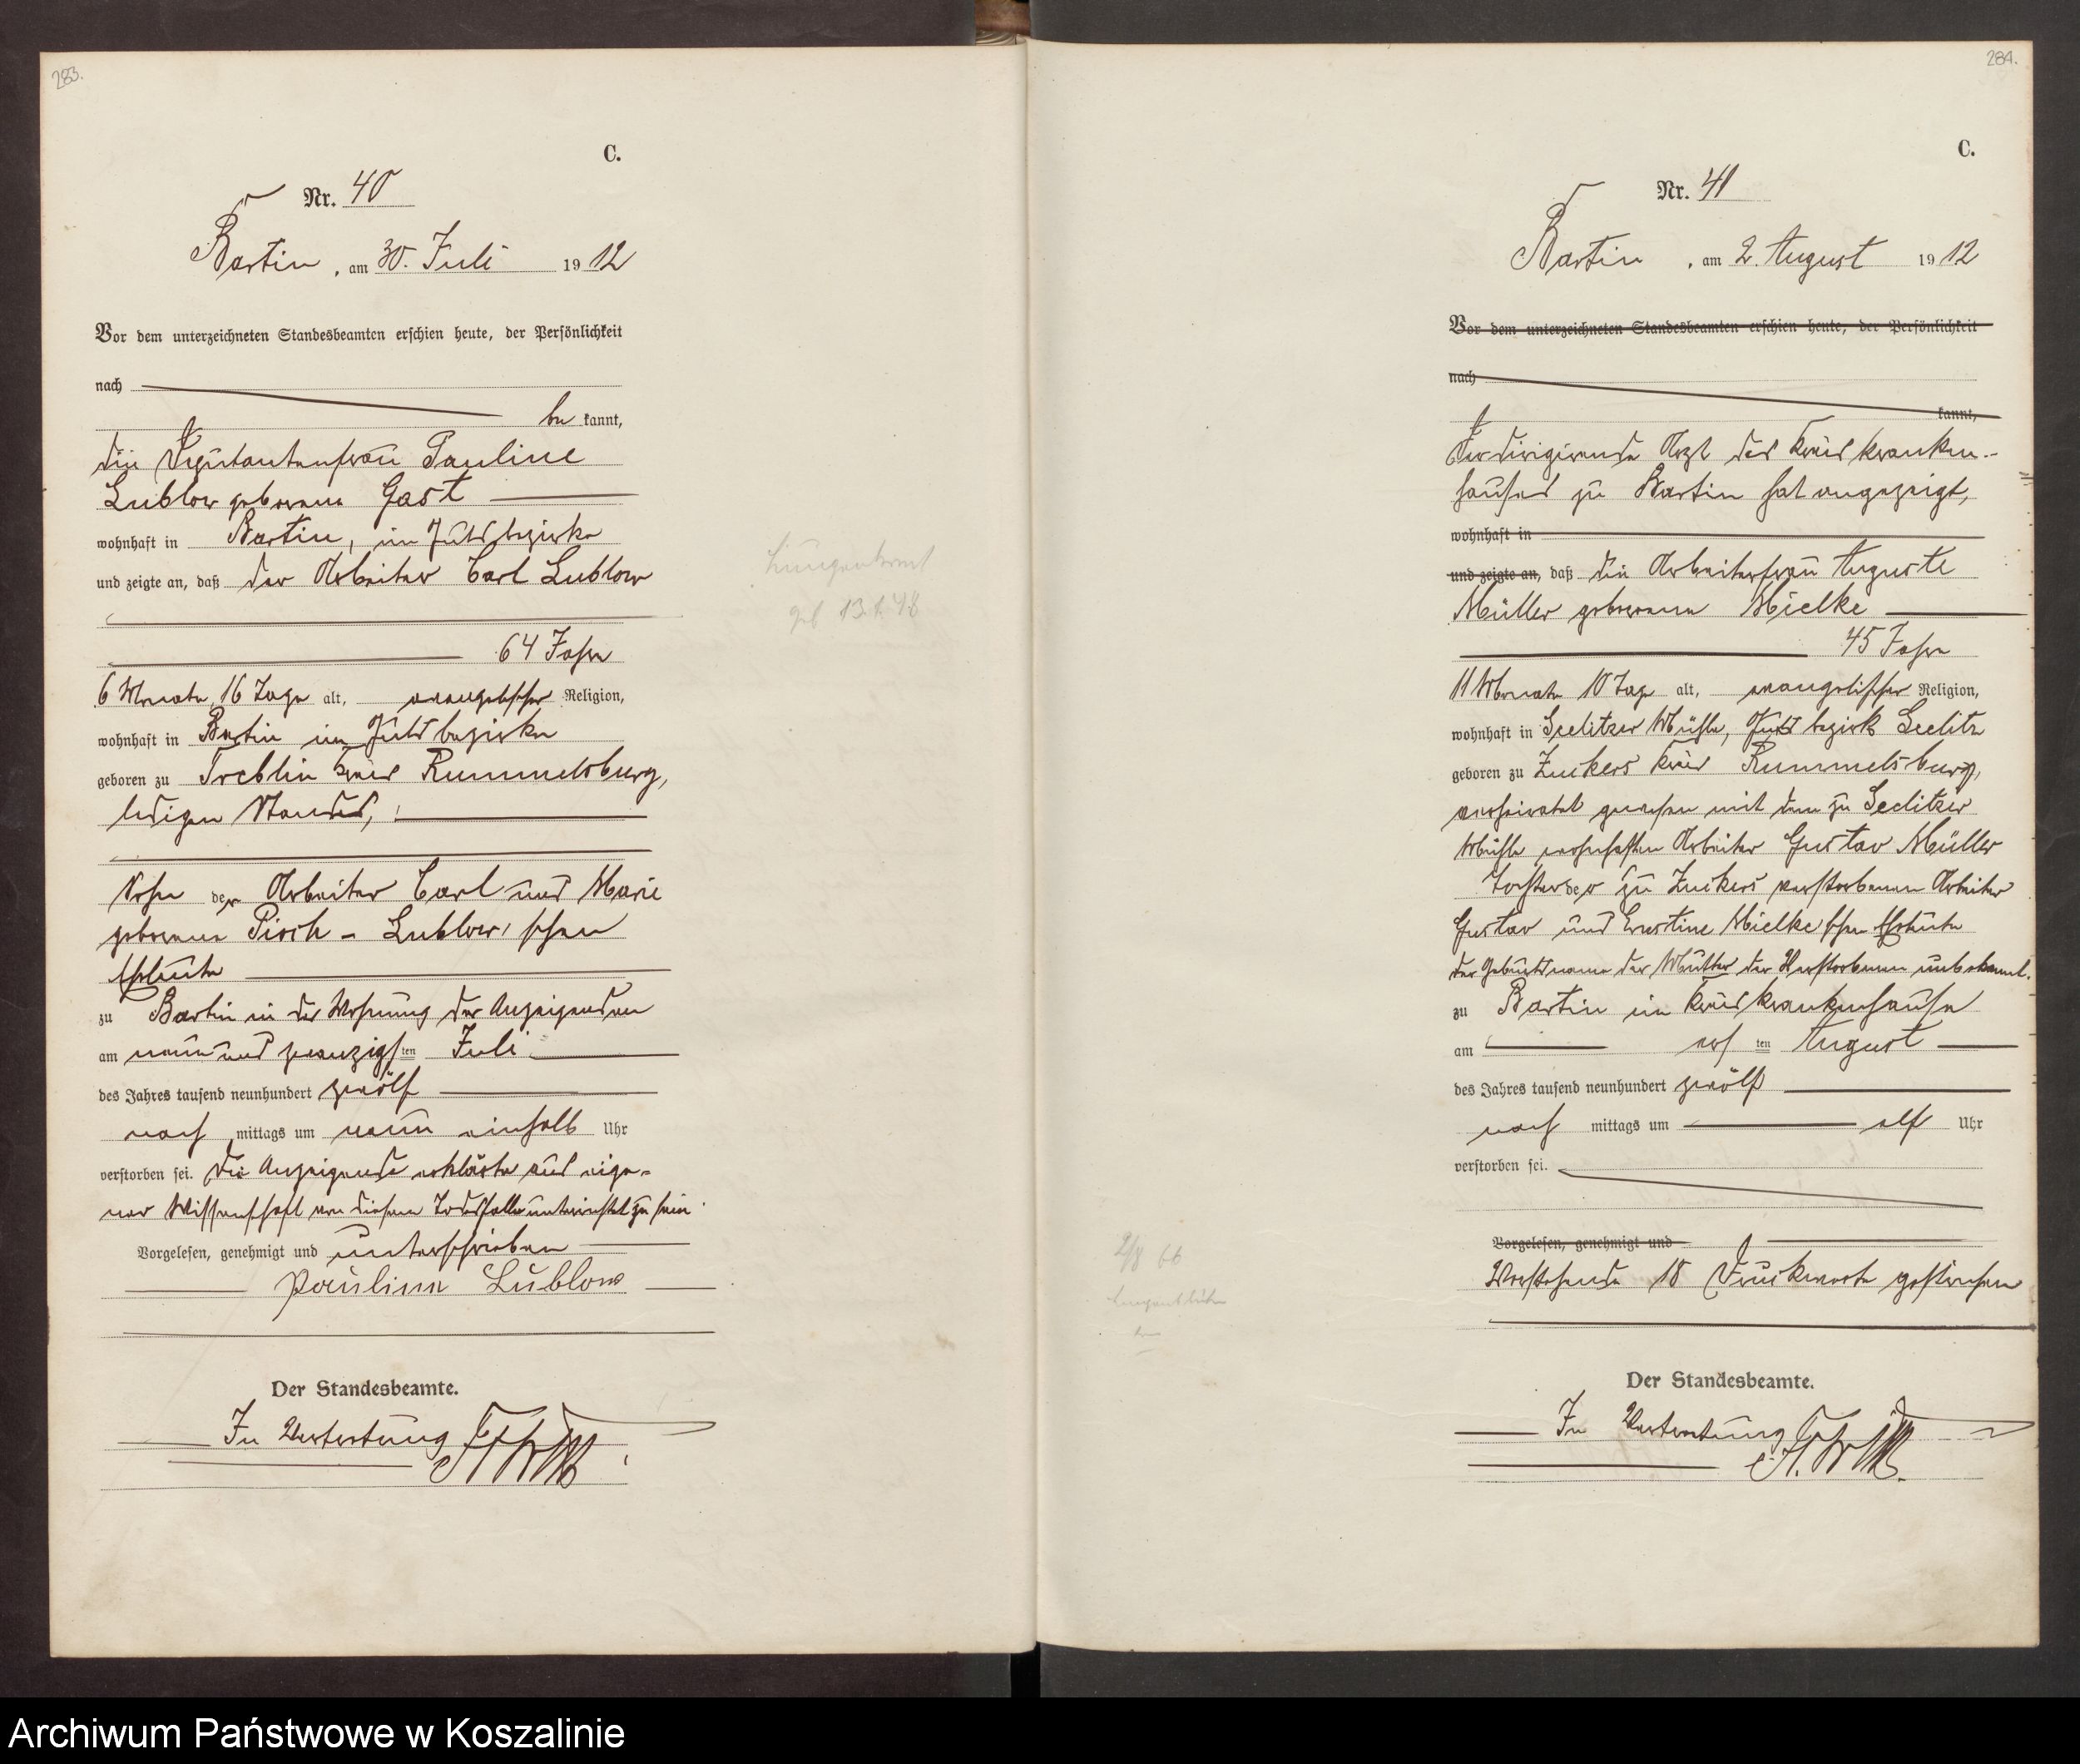 283.
C.
Nr. 40
Bartin, am 30. Juli 1912
Vor dem unterzeichneten Standesbeamten erschien heute, der Persönlichkeit
nach
be kannt,
die Deputantenfrau Pauline
Lublow geborene Gast
wohnhaft in Bartin, im Gutsbezirke
und zeigte an, daß der Arbeiter Carl Lublow
64 Jahre
6 Monate, 16 Tage alt, evangelischer Religion,
wohnhaft in Bartin im Gutsbezirke
geboren zu Treblin Kreis Rummelsburg,
ledigen Standes,
Sohn der Arbeiter Carl und Marie
geborene Pioch - Lublow'schen
Eheleute
zu Bartin in der Wohnung der Anzeigenden
am neun und zwanzigsten Juli
des Jahres tausend neunhundert zwölf
nach mittags um neun einhalb Uhr
verstorben sei. Die Anzeigende erklärte aus eige-
ner Wissenschaft von diesem Todesfalle unterrichtet zu sein.
Vorgelesen, genehmigt und unterschrieben
Pauline Lublow
Der Standesbeamte.
In Vertretung
geb 13.1.48
284.
C.
Nr. 41
Bartin, am 2. August 1912
Vor dem unterzeichneten Standesbeamten erschien heute, der Persönlichkeit
nach
kannt,
Der dirigirende Arzt des Kreiskranken-
hauses zu Bartin hat angezeigt,
wohnhaft in
und zeigte an, daß die Arbeiterfrau Auguste
Müller geborene Mielke
45 Jahre
11 Monate 10 Tage alt, evangelischer Religion,
wohnhaft in Seelitzer Mühle, Gutsbezirk Seelitz
geboren zu Zuckers Kreis Rummelsburg,
verheiratet gewesen mit dem zu Seelitzer
Mühle wohnhaften Arbeiter Gustav Müller
Tochter der zu Zuckers verstorbenen Arbeiter
Gustav und Ernstine Mielke'schen Eheleute
der Geburtsname der Mutter der Verstorbenen unbekannt.
zu Bartin im Kreiskrankenhause
am ersten August
des Jahres tausend neunhundert zwölf
nach mittags um elf Uhr
verstorben sei.
Vorgelesen, genehmigt und
Vorstehende 18 Druckworte gestrichen
Der Standesbeamte.
In Vertretung
Archiwum Państwowe w Koszalinie